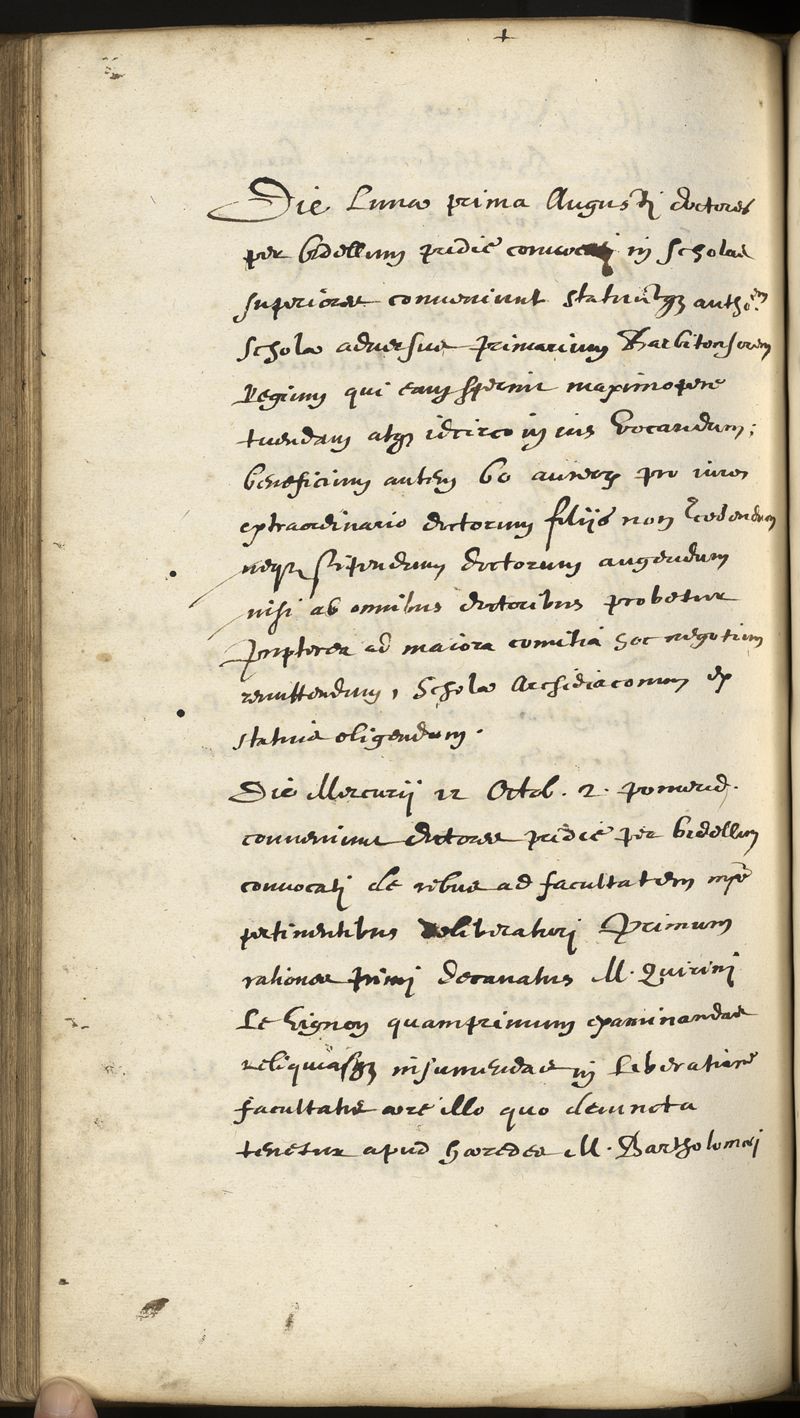 +
Die Lunæ prima Augusti doctores
per bidellum pridie convocati in scholas
superiores conveniunt statuuntq; autho.em
scholæ adversus primarium Barbitonsorem
Regium qui eam spernit maximopere
tuendam atq; idcirco in ius vocandum;
beneficium autem 60 aureor pro iure
extraordinario doctorum filijs non cedendum
neq; stipendium doctorum augendum
nisi ab omnibus doctoribus probetur
propterea ad maiora comitia hoc negotium
remittendum, scholæ Archidiaconum ex
statutis eligendum.
Die Mercurij 12 Octob. 2. pomerid.
conveniunt doctores pridie per bidellum
convocati de rebus ad facultatem
pertinentibus deliberaturi Primum
rationes primi decanatus M. Quirini
Le Vignon quamprimum examinandas
reliquiasq; insumendas in liberatione
facultatis ære illo quo devincta
tenetur apud hæredes M. Bartholomæi